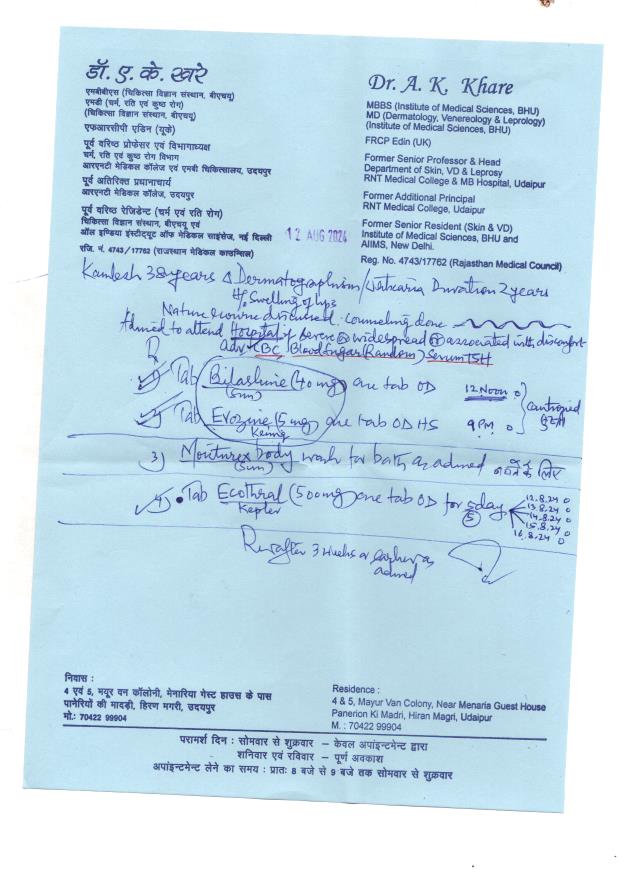 डॉ. ए. के. खरे
एमबीबीएस (चिकित्सा विज्ञान संस्थान, बीएचयू)
एमडी (चर्म, रति एवं कुष्ठ रोग)
(चिकित्सा विज्ञान संस्थान, बीएचयू)
एफआरसीपी एडिन (यूके)
पूर्व वरिष्ठ प्रोफेसर एवं विभागाध्यक्ष
चर्म, रति एवं कुष्ठ रोग विभाग
आरएनटी मेडिकल कॉलेज एवं एमबी चिकित्सालय, उदयपुर
पूर्व अतिरिक्त प्रधानाचार्य
आरएनटी मेडिकल कॉलेज, उदयपुर
पूर्व वरिष्ठ रेजिडेन्ट (चर्म एवं रति रोग)
चिकित्सा विज्ञान संस्थान, बीएचयू एवं
ऑल इण्डिया इंस्टीट्यूट ऑफ मेडिकल साइंसेज, नई दिल्ली
रजि. नं. 4743/17762 (राजस्थान मेडिकल काउन्सिल)
Dr. A. K. Khare
MBBS (Institute of Medical Sciences, BHU)
MD (Dermatology, Venereology & Leprology)
(Institute of Medical Sciences, BHU)
FRCP Edin (UK)
Former Senior Professor & Head
Department of Skin, VD & Leprosy
RNT Medical College & MB Hospital, Udaipur
Former Additional Principal
RNT Medical College, Udaipur
Former Senior Resident (Skin & VD)
Institute of Medical Sciences, BHU and
AIIMS, New Delhi.
Reg. No. 4743/17762 (Rajasthan Medical Council)
12 AUG 2024
Kamlesh 38 years Δ Dermatographism/Urticaria Duration 2 years
H/o Swelling of lips
Nature & course discussed. Counseling done
Advised to attend Hospital if severe widespread associated with discomfort
Adv CBC Blood Sugar (Random) Serum TSH
1) Tab Bilashine (40 mg) one tab OD 12 Noon
(Sun)
2) Tab Evozine (5 mg) one tab OD HS 9 PM
3) Moisturex body wash for bath as advised नहाने के लिए
(Sun)
4) Tab Ecothral (500 mg) one tab OD for 5 day
Kepler (5)
12.8.24
13.8.24
14.8.24
15.8.24
16.8.24
Rev after 3 weeks or earlier as
advised
निवास :
4 एवं 5, मयूर वन कॉलोनी, मेनारिया गेस्ट हाउस के पास
पानेरियों की मादड़ी, हिरण मगरी, उदयपुर
मो.: 70422 99904
Residence :
4 & 5, Mayur Van Colony, Near Menaria Guest House
Panerion Ki Madri, Hiran Magri, Udaipur
M. : 70422 99904
परामर्श दिन : सोमवार से शुक्रवार – केवल अपांइन्टमेन्ट द्वारा
शनिवार एवं रविवार – पूर्ण अवकाश
अपांइन्टमेन्ट लेने का समय : प्रातः 8 बजे से 9 बजे तक सोमवार से शुक्रवार